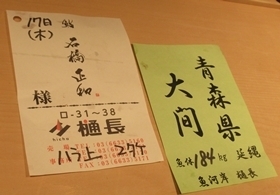 17日
(木)
鮨
石橋正和
様
ロ-31~38
樋長
ハラ上 2ケケ
青森県
大间
魚体184kg 延縄
魚河岸 樋長